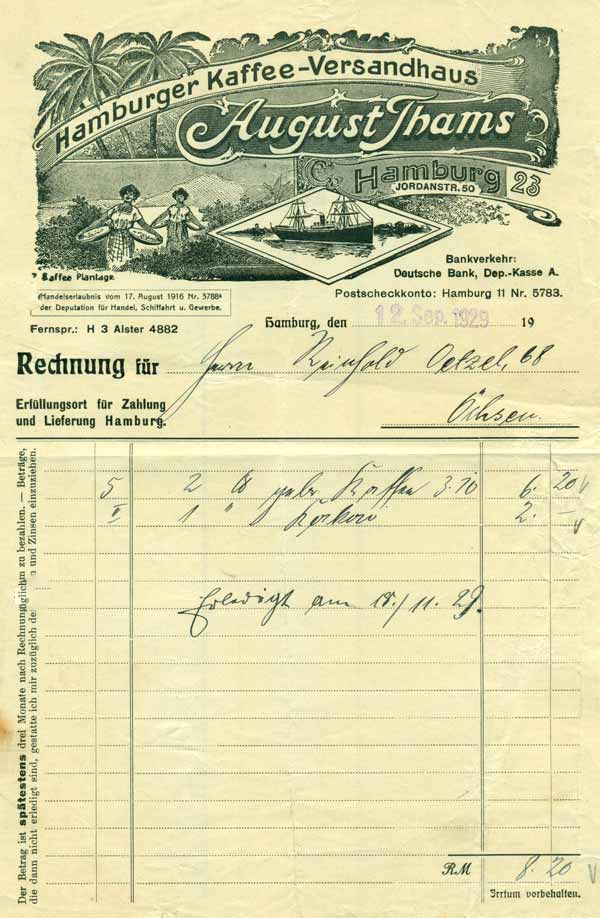 Hamburger Kaffee-Versandhaus
August Thams
Hamburg 23
JORDANSTR. 50
Kaffee Plantage
Bankverkehr:
Deutsche Bank, Dep.-Kasse A.
Handelserlaubnis vom 17. August 1916 Nr. 3788a
der Deputation für Handel, Schiffahrt u. Gewerbe.
Postscheckkonto: Hamburg 11 Nr. 5783.
Fernspr.: H 3 Alster 4882
Hamburg, den 12. Sep. 1929 19
Rechnung für Herrn Reinhold Oetzel, 68
Erfüllungsort für Zahlung
und Lieferung Hamburg.
Öchsen
5 2 ℔ gebr Kaffee 3.10 6. 20
II 1 " Kakao 2. –
Erledigt am 18./11. 29.
RM 8. 20
Irrtum vorbehalten.
Der Betrag ist spätestens drei Monate nach Rechnung zu bezahlen. — Beträge,
die dann nicht erledigt sind, gestatte ich mir zuzüglich und Zinsen einzuziehen.